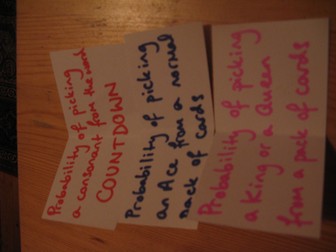 Probability of picking
a consonant from the word
COUNTDOWN
Probability of picking
an Ace from a normal
pack of cards
Probability of picking
a King or a Queen
from a pack of cards